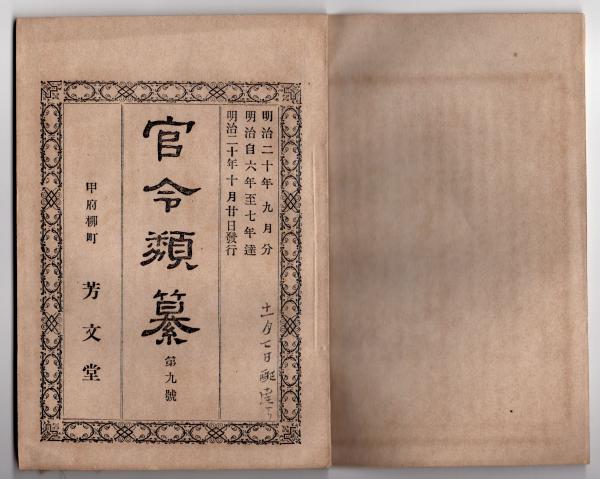 明治二十年九月分
明治自六年至七年達
明治二十年十月廿日發行
十一月七日配達ス
官令類纂
第九號
甲府柳町
芳文堂